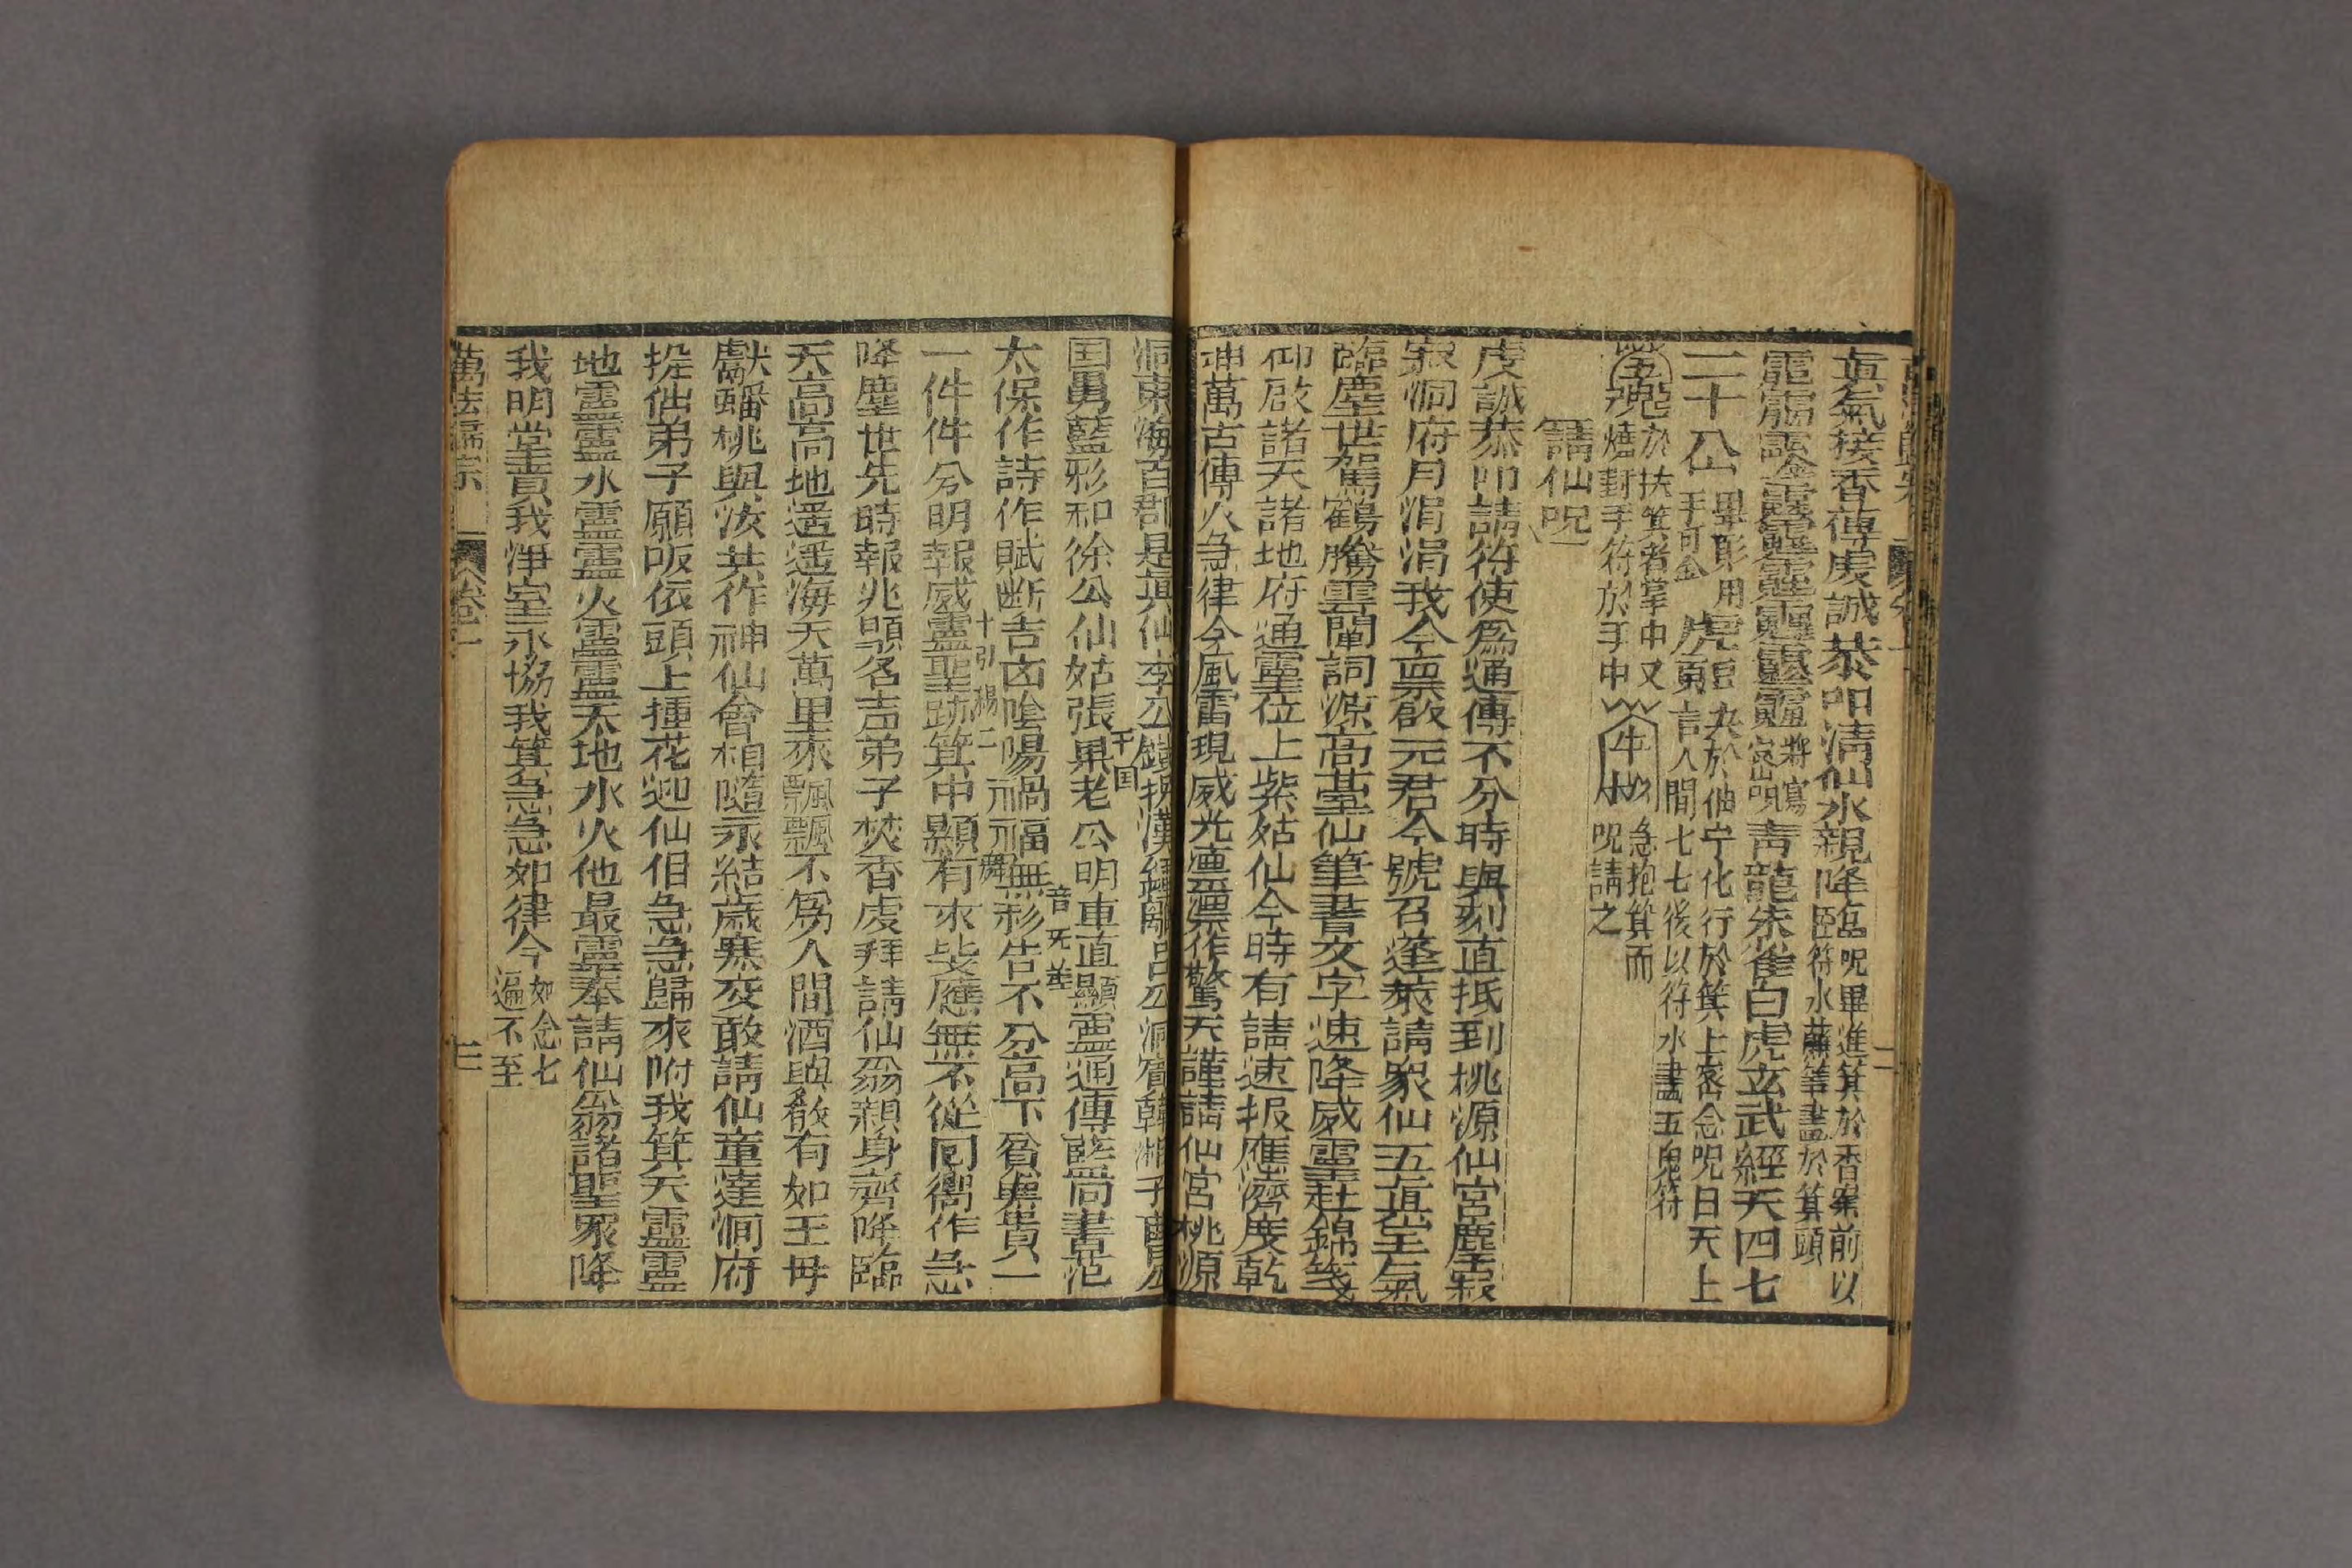 眞氣接香傳虔誠恭叩請仙水親降臨呪畢進箕於香案前以
臣符水蘸筆畫於箕頭
青龍朱雀白虎玄武經天四七
二十八
畢彫用
手可金
虎
決於仙宁化行於箕上密念呪曰天上
言人間七七後以符水書五鬼符
魂
於扶箕者掌中又
燒封手符於手中
急抱箕而
呪請之
請仙呪
虔誠恭叩請符使爲通傳不分時與刻直抵到桃源仙宮塵寂
寂洞府月涓涓我今禀啟元君令號召蓬萊請眾仙五眞堂氣
臨塵世駕鶴驂雲闡詞源高臺仙筆書文字速降威靈赴錦箋
仰啟諸天諸地府通靈位上紫姑仙今時有請速报應濟度乾
坤萬古傳火急律令風雷現威光凜凜作驚天謹請仙宮桃源
洞東海百郡是眞仙李公鐵拐漢鍾離呂公洞賓韓湘子曹
国舅藍彩和徐公仙姑張果老公明車直顯靈通傳藍尚書范
太保作詩作賦断吉凶陰陽禍福無移告不分高下貧與貴一
一件件分明報威靈聖跡箕中顯有求皆應無不從同衙作急
降塵世先時報兆顯名声弟子焚香虔拜請仙翁親身齊降臨
天高高地遥遥海天萬里來飄飄不爲人間酒與殽有如王母
獻蟠桃與汝共作神仙會相隨永結歲寒交敢請仙童達洞府
投仙弟子願皈依頭上揷花迎仙侣急急歸來附我箕天靈靈
地靈靈水靈靈火靈靈天地水火他最靈奉請仙翁諸聖眾降
我明堂責我淨室永協我箕急急如律令如念七
遍不至
萬法歸宗 卷二 三